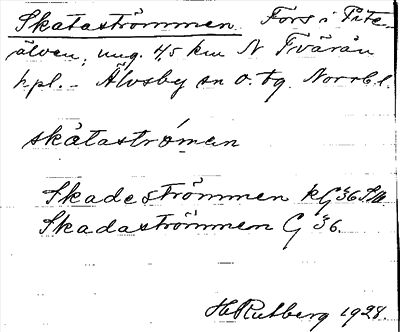 Skataströmmen. Fors i Pite-
älven, ung. 4,5 km N Tvärån
hpl. - Älvsby sn o. tg. Norrb. l.
skàtastrǻman
Skadeströmmen kG 36
Skadaströmmen G 36.
H Rutberg 1928.